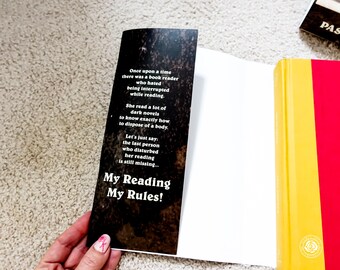 Once upon a time
there was a book reader
who hated
being interrupted
while reading.
She read a lot of
dark novels
to know exactly how
to dispose of a body.
Let's just say:
the last person
who disturbed
her reading
is still missing...
My Reading
My Rules!
PAS